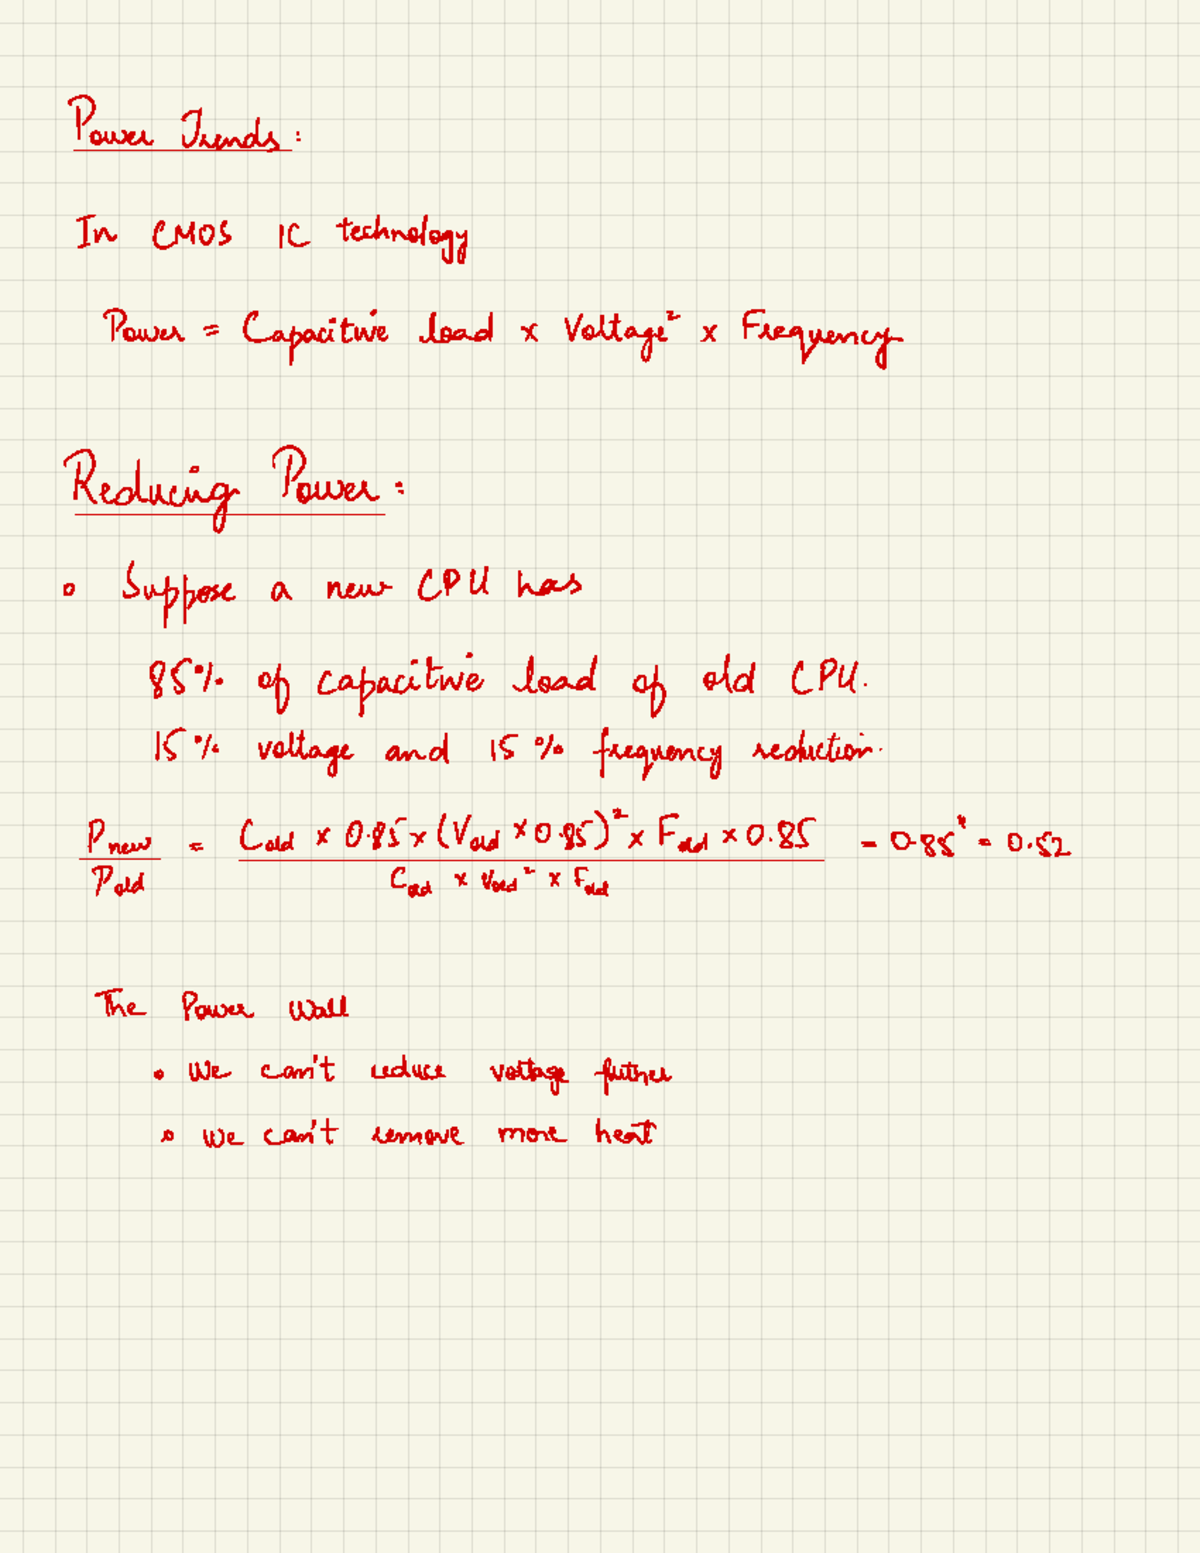 Power Trends:
In CMOS IC technology
Power = Capacitive load x Voltage² x Frequency
Reducing Power:
• Suppose a new CPU has
85% of capacitive load of old CPU.
15% voltage and 15% frequency reduction.
P new / P old = C old x 0.85 x (V old x 0.85)² x F old x 0.85 / C old x V old² x F old = 0.85⁴ = 0.52
The Power Wall
• We can't reduce voltage further
• we can't remove more heat